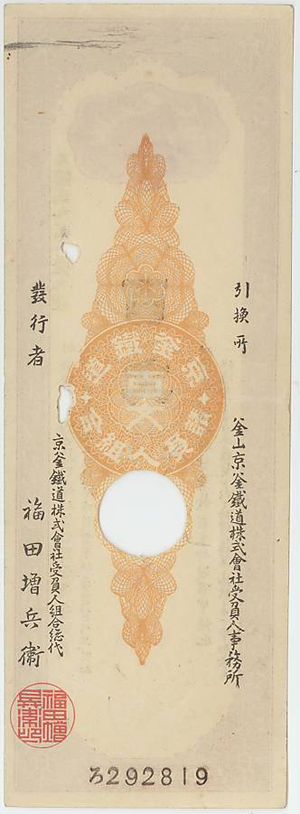 引換所
釜山京釜鐵道株式會社受負人事務所
京釜鐵道
發行者
京釜鐵道株式會社受負人組合總代
福田增兵衞
ろ292819